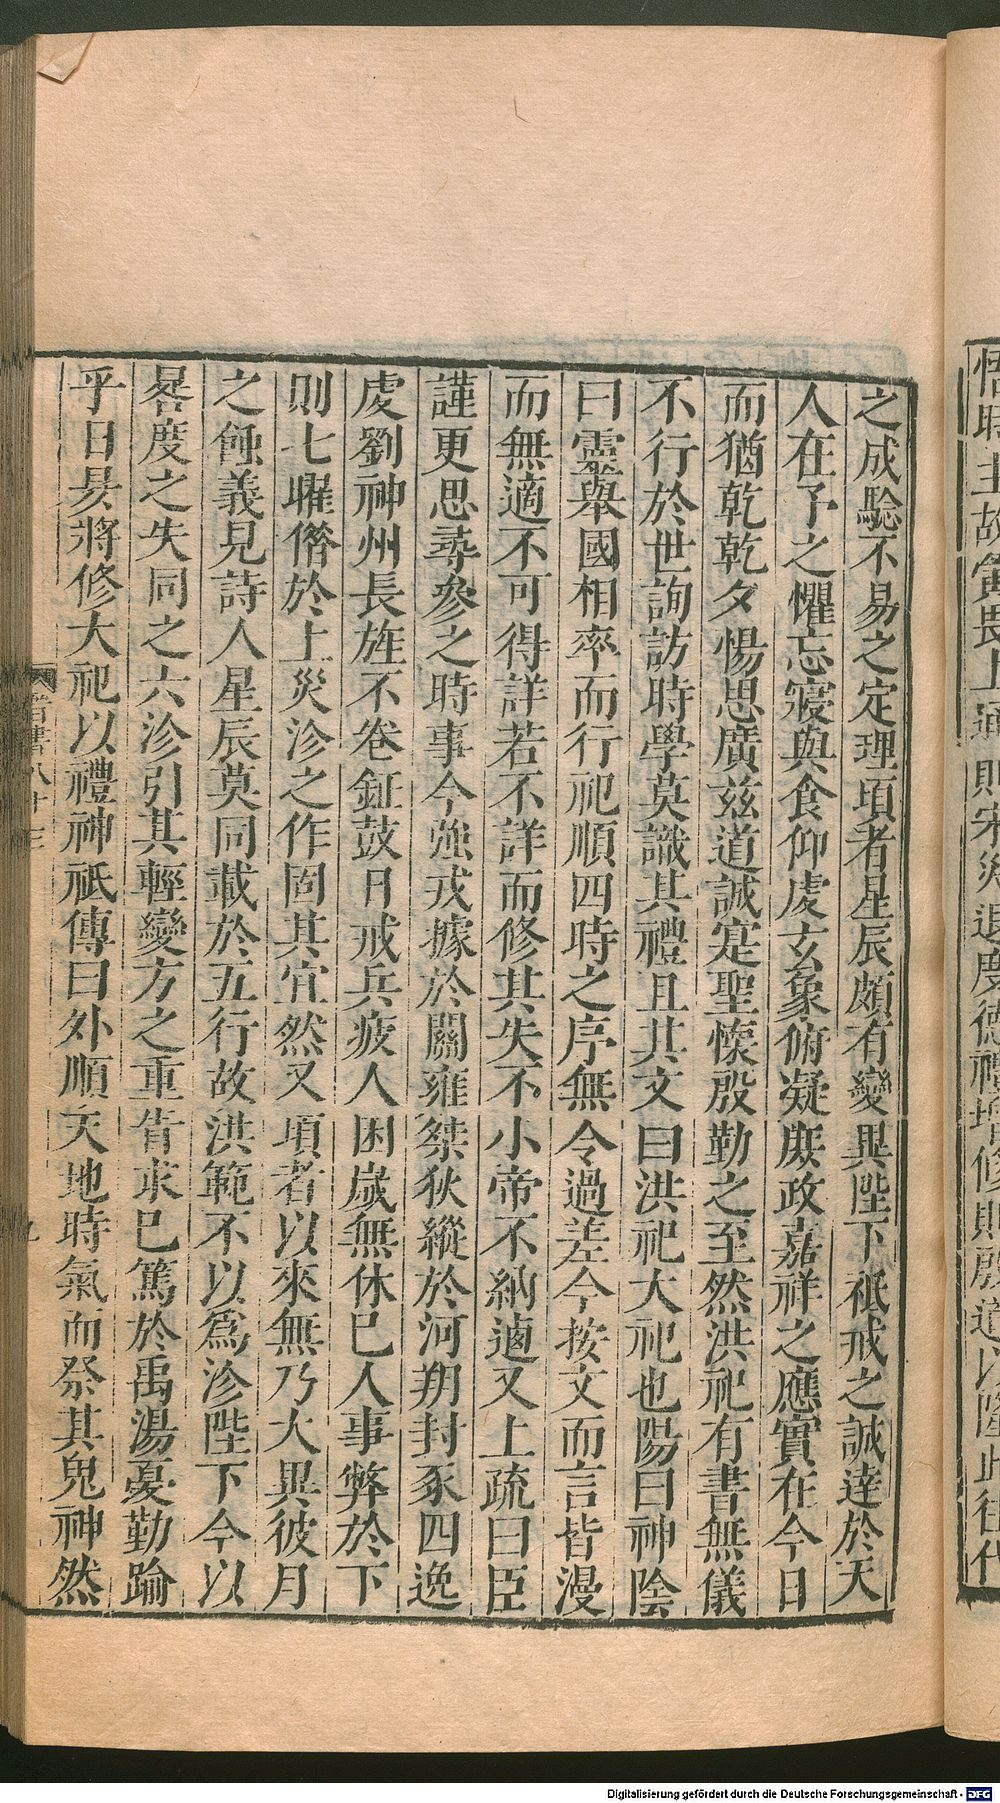 悟時主故寅畏上通則宋災退度德禮增修則殷道以隆此往代
之成驗不易之定理頃者星辰頗有變異陛下祇戒之誠達於天
人在予之懼忘寢與食仰虔玄象俯凝庶政嘉祥之應實在今日
而猶乾乾夕惕思廣茲道誠寔聖懷殷勤之至然洪祀有書無儀
不行於世詢訪時學莫識其禮且其文曰洪祀大祀也陽曰神陰
曰靈舉國相率而行祀順四時之序無令過差今按文而言皆漫
而無適不可得詳若不詳而修其失不小帝不納逌又上疏曰臣
謹更思尋參之時事今強戎據於關雍桀狄縱於河朔封豕四逸
虔劉神州長旌不卷鉦鼓日戒兵疲人困歲無休已人事弊於下
則七曜僭於上災沴之作固其宜然又頃者以來無乃大異彼月
之蝕義見詩人星辰莫同載於五行故洪範不以爲沴陛下今以
晷度之失同之六沴引其輕變方之重眚求已篤於禹湯憂勤踰
乎日昃將修大祀以禮神祇傳曰外順天地時氣而祭其鬼神然
晉書八十三
九
Digitalisierung gefördert durch die Deutsche Forschungsgemeinschaft - DFG